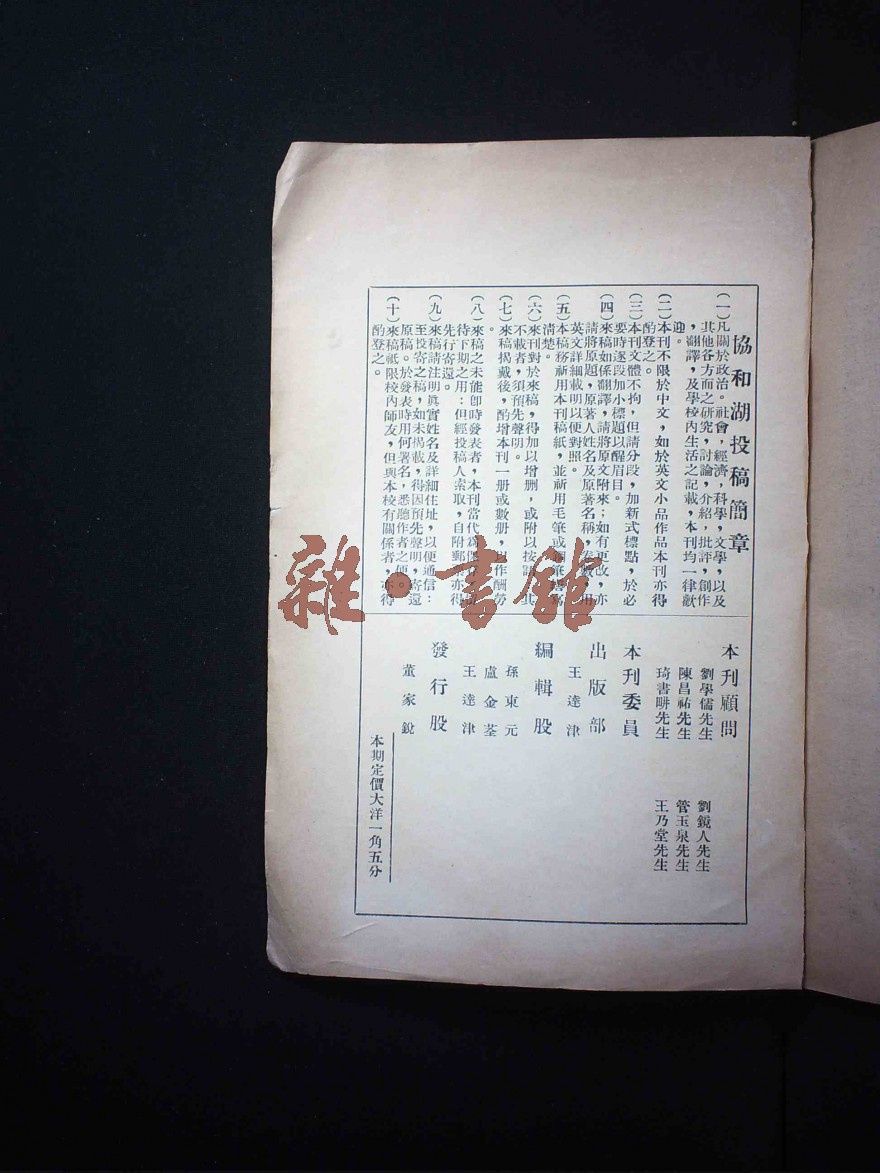 協和湖投稿簡章
(一)凡關於政治。社會,經濟,科學,文學,以及
其他各方面之研究,討論,介紹,批評,創作
,翻譯,及學校內生活之記載,本刊均一律歡
迎。
(二)本刊不限於中文,如於英文小品作品本刊亦得
酌登之。
(三)本刊文體不拘,但請分段,加新式標點,於必
要時逐段加小標題以醒眉目。
(四)來稿如係翻譯,請將原文附來;如有更改,亦
請將原題,原著人姓名及原著名稱,用
英文詳細載明以便對照。
(五)本稿務祈用本刊稿紙,並祈用毛筆或
清楚。
(六)來刊對於來稿,得加以增刪,或附以按
不載者,須預先聲明。
(七)來稿揭戴後,酌增本刊一册或數册,以作酬勞
。
(八)來稿之未能卽時發表者,本刊當代爲
待下期之用:但經投稿人索取,自附郵亦得
先行寄還。
(九)來稿請注明眞實姓名及詳細住址,以便通信:
至投寄之稿,如未揭載,得因預先聲明,寄還
原稿。於發表時用何署名,悉聽作者之便。
(十)來稿祗限校內師友,但與本校有關係者,亦得
酌登之。
本刊顧問
劉學儒先生 劉鏡人先生
陳昌祐先生 管玉泉先生
琦書畊先生 王乃堂先生
本刊委員
出版部
王達津
編輯股
孫東元
盧金荃
王達津
發行股
董家銳
本期定價大洋一角五分
雜·書館